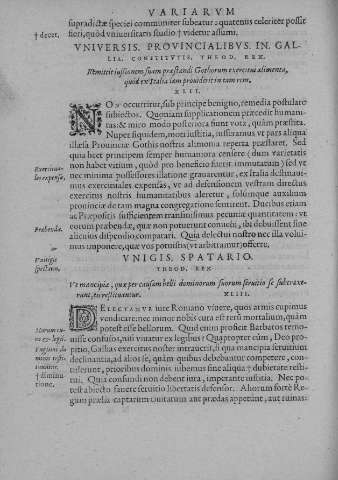 VARIARVM
supradictæ speciei communiter subeatur: quatenus celeriter possit
† decet. fieri, quod vniuersitatis studio † videtur assumi.
VNIVERSIS. PROVINCIALIBVS. IN. GAL-
LIA. CONSTITVTIS. THEOD. REX.
Remittit iussionem suam præstandi Gothorum exercitui alimenta,
quod ex Italia iam prouiderit in eam rem.
XLII.
NON occurritur, sub principe benigno, remedia postulare
subiectos. Quoniam supplicationem præcedit humani-
tas: & miro modo posteriora sunt vota, quàm præstita.
Nuper siquidem, mota iustitia, iusseramus vt pars aliqua
illæsa Prouinciæ Gothis nostris alimonia reperta præstaret. Sed
quia licet principem semper humaniora censere (dum varietatis
non habet vitium, quod pro beneficio fuerit immutatum) sed vt
nec minima possessores illatione grauarentur, ex Italia destinaui-
Exercitua- mus exercituales expensas, vt ad defensionem vestram directus
les expensæ. exercitus nostris humanitatibus aleretur, solumque auxilium
prouinciæ de tam magna congregatione sentirent. Ducibus etiam
ac Præpositis sufficientem transmisimus pecuniæ quantitatem: vt
Præbendæ. eorum præbendæ, quæ non poterunt conuehi, ibi debuissent sine
alicuius dispendio comparari. Quia delectui nostro nec illa volui-
mus imponere, quæ vos potuisse (vt arbitramur) offerre.
VNIGIS. SPATARIO.
THEOD. REX
Vt mancipia, quæ per causam belli dominorum suorum seruitio se subtraxe-
runt, restituantur. XLIII.
DELECTAMVR iure Romano viuere, quos armis cupimus
vendicare: nec minor nobis cura est rerum moralium, quàm
potest esse bellorum. Quid enim proficit Barbaros remo-
uisse confusos, nisi viuatur ex legibus? Quapropter cùm, Deo pro-
pitio, Gallias exercitus noster intrauerit, si qua mancipia seruitium
declinantia, ad alios se, quàm quibus debebantur competere, con-
tulerunt, prioribus dominis iubemus sine aliqua † dubietate resti-
tui. Quia confundi non debent iura, imperante iustitia. Nec po-
test abiecto fauere seruitio libertatis defensor. Aliorum fortè Re-
gum prælia captarum ciuitatum aut prædas appetunt, aut ruinas: